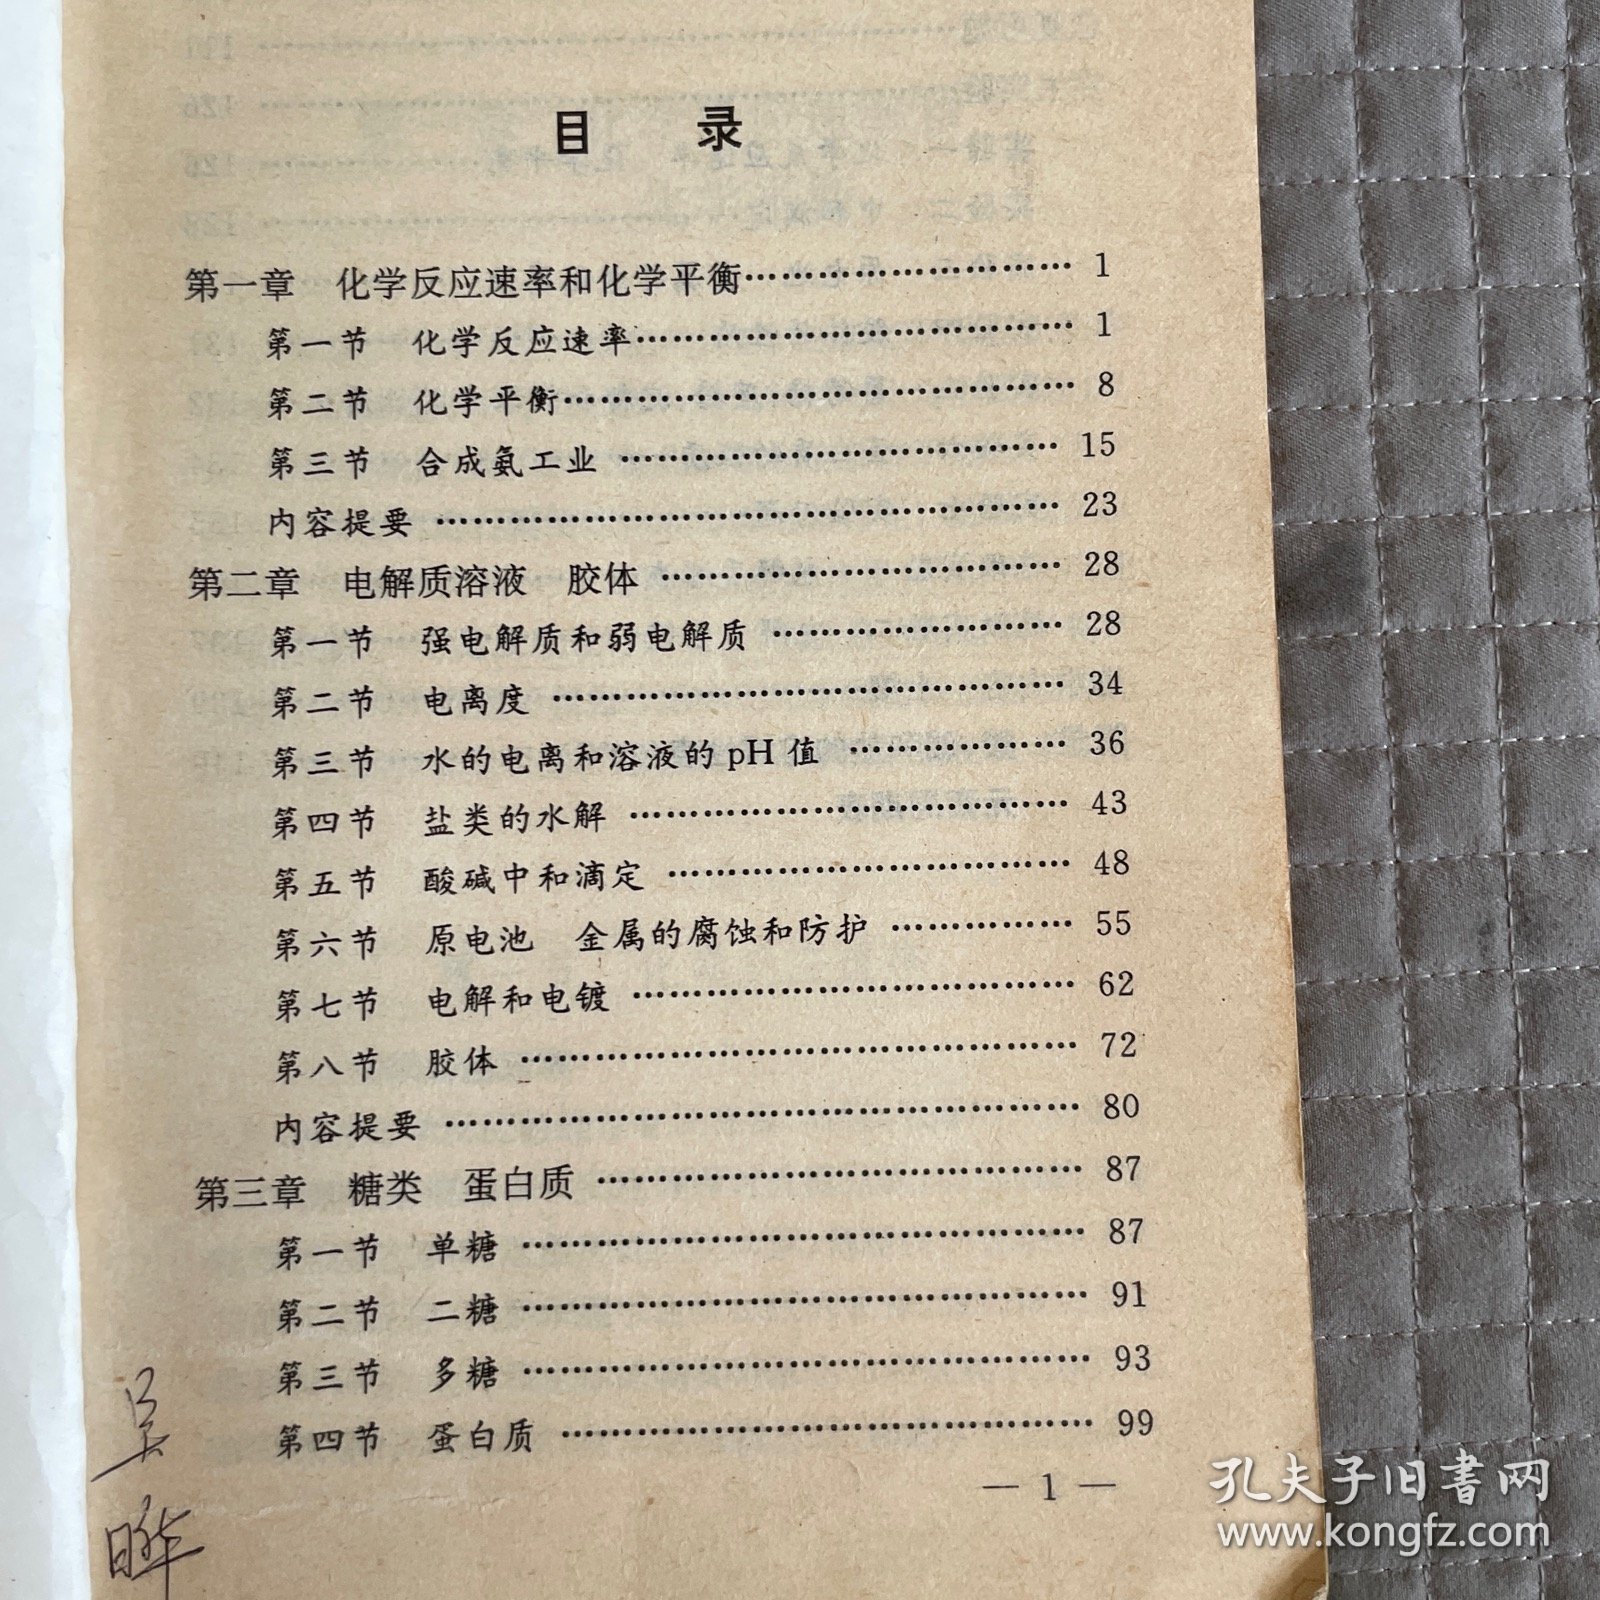 目 录
第一章 化学反应速率和化学平衡………………………… 1
第一节 化学反应速率………………………………… 1
第二节 化学平衡……………………………………… 8
第三节 合成氨工业 ………………………………… 15
内容提要 ……………………………………………… 23
第二章 电解质溶液 胶体 ……………………………… 28
第一节 强电解质和弱电解质 ……………………… 28
第二节 电离度 ……………………………………… 34
第三节 水的电离和溶液的 pH 值 ………………… 36
第四节 盐类的水解 ………………………………… 43
第五节 酸碱中和滴定 ……………………………… 48
第六节 原电池 金属的腐蚀和防护 ……………… 55
第七节 电解和电镀 ………………………………… 62
第八节 胶体 ………………………………………… 72
内容提要 ……………………………………………… 80
第三章 糖类 蛋白质 …………………………………… 87
第一节 单糖 ………………………………………… 87
第二节 二糖 ………………………………………… 91
第三节 多糖 ………………………………………… 93
第四节 蛋白质 ……………………………………… 99
— 1 —
吴
晔
孔夫子旧书网
www.kongfz.com